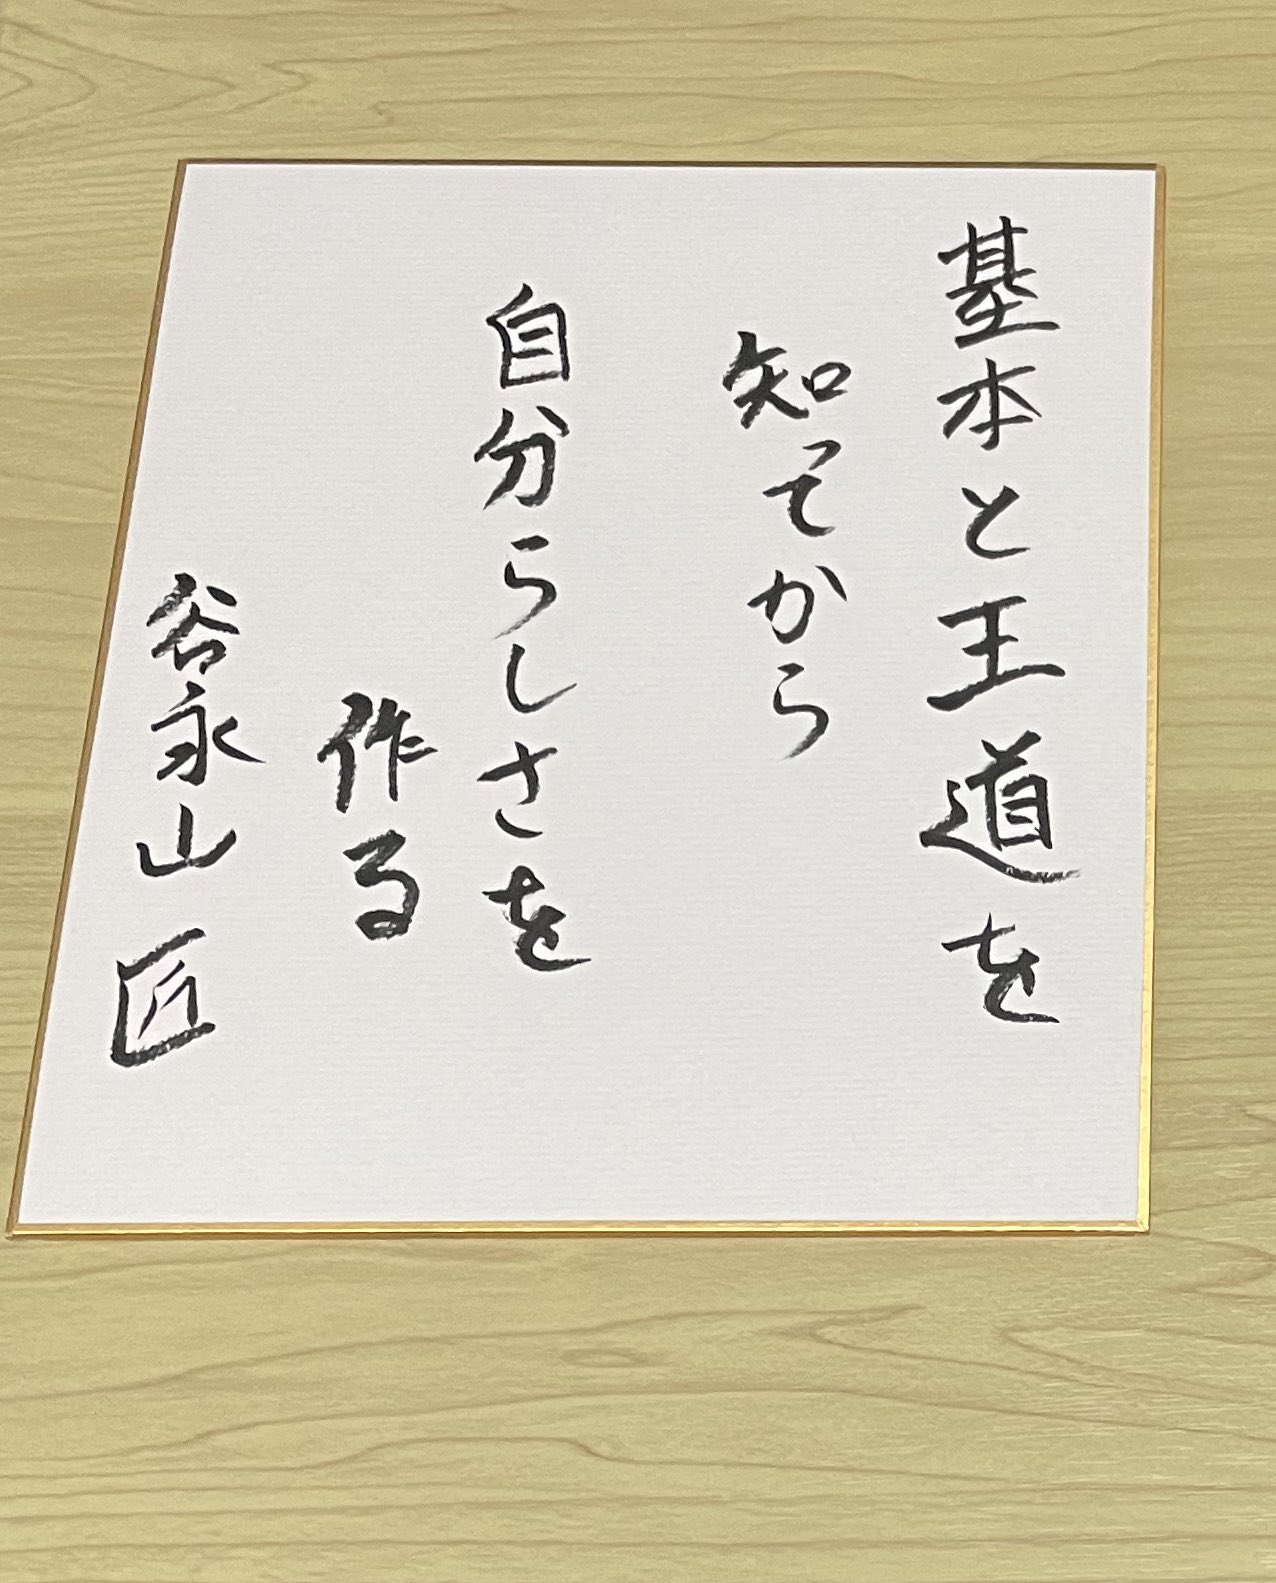 基本と王道を
知ってから
自分らしさを
作る
谷永山 匠